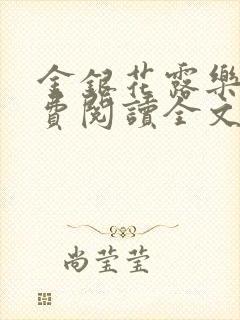 金銀花露樂
費閱讀全文
尚莹莹